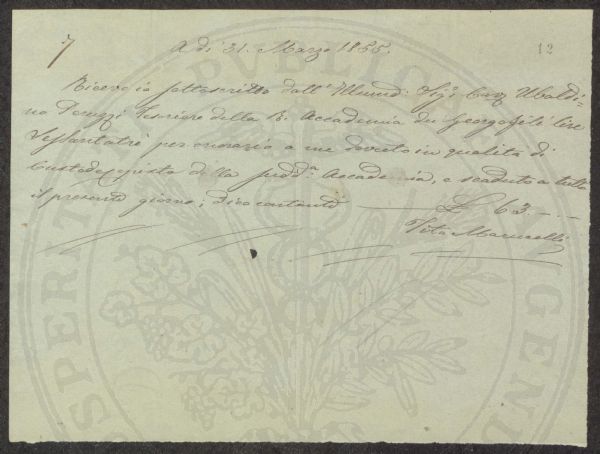 7
A dì 31. Marzo 1855.
12
Ricevo io sottoscritto dall' Illmo: Sigr: Cav Ubaldi=
no Peruzzi Tesoriere della R: Accademia dei Georgofili lire
Sessantatrè per onorario a me dovuto in qualità di
Custode, e copista della sudd.a Accademia, e scaduto a tutto
il presente giorno; dico contanti £ 63.
Tito Marucelli
PUBBLICO
PROSPERITÀ